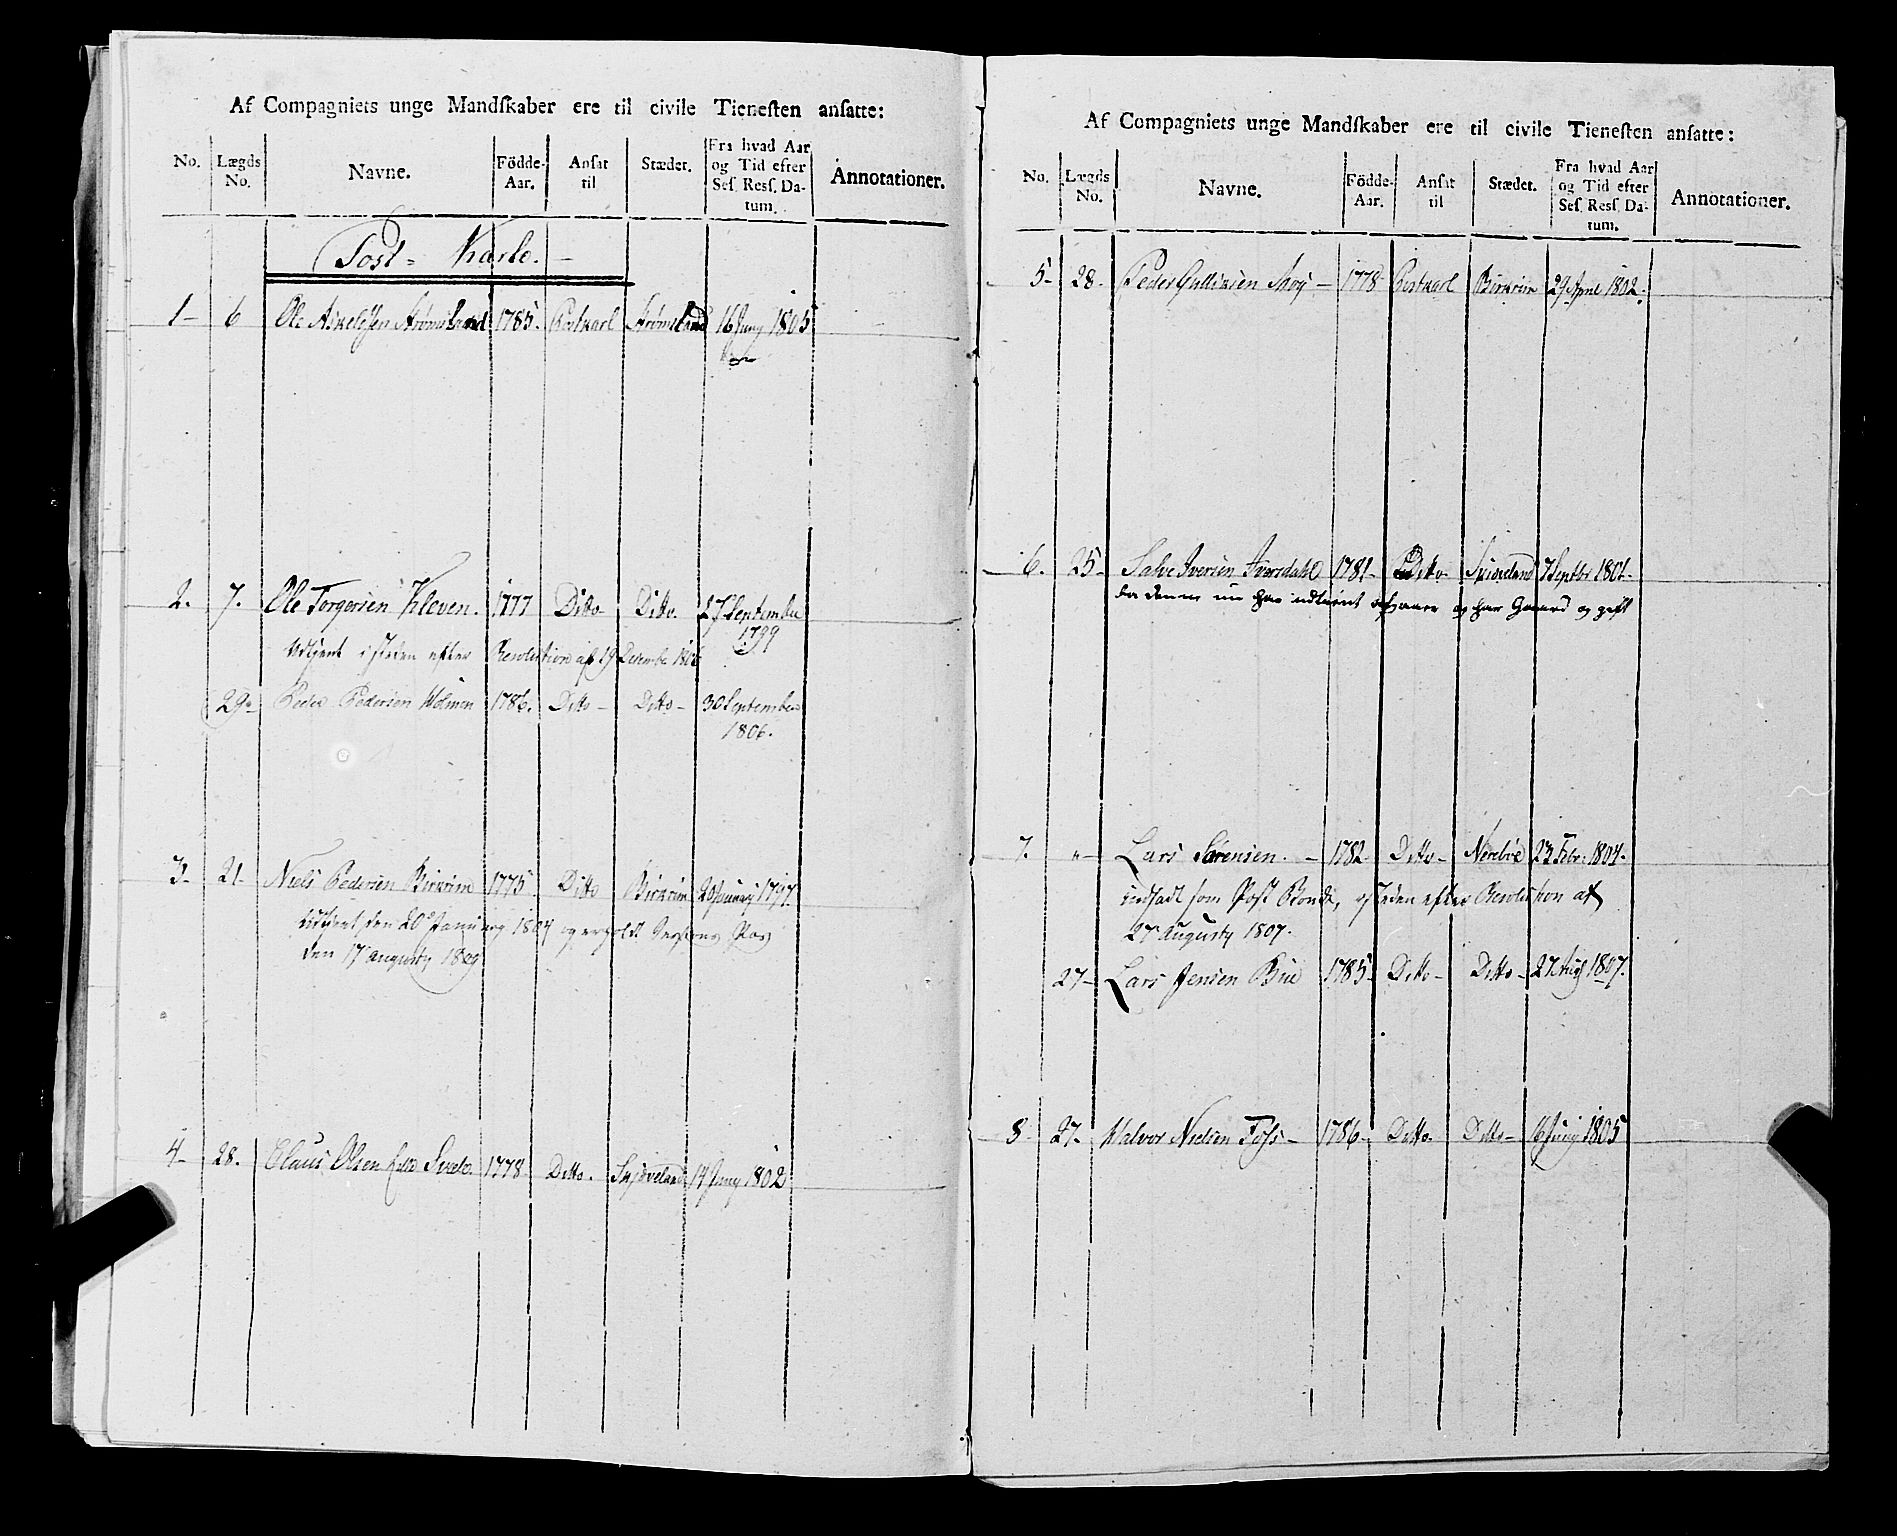 Af Compagniets unge Mandſkaber ere til civile Tieneſten anſatte:
No. Lægds No. Navne. Födde-Aar. Anſat til Stædet. Fra hvad Aar og Tid efter Seſ. Reſſ. Datum. Annotationer.
Post = Karle. -
1- 6 Ole Strømsland 1785. Postkarl Strømsland 16 Juny 1805
2. 7. Ole Torgersen Kleven. 1777 Ditto Ditto. 27 Septembr
1799
Udtjent i steden efter Resolution af 19 Decembr 1806
29 Peder Pedersen Holmen 1786. Ditto - Ditto - 30 September
1806.
3- 21- Niels Pedersen Birkrim 1775 Ditto Birkrim 20 January 1797
Udtjent den 20 January 1804 og erholdt Sessions Pas
den 17 Augusty 1809
4- 28. Claus Olsen Svele 1778 Ditto. Skjøveland 14 Juny 1802
Af Compagniets unge Mandſkaber ere til civile Tieneſten anſatte:
No. Lægds No. Navne. Födde-Aar. Anſat til Stædet. Fra hvad Aar og Tid efter Seſ. Reſſ. Datum. Annotationer.
5- 28- Peder Gullixsen Skoy - 1778 Postkarl Birkrim 29 April 1802.
6. 25- Salve Iversen Iversdahl 1781- Ditto- 7 Septbr 1801-
da denne nu har udtient og har Gaard og gift
7. "- Lars Sørensen. - 1782 Ditto- Nerebøe 23 Febr: 1804-
indsadt som Post Bonde, isteden efter Resolution af
27 Augusty 1807.
27- Lars Jensen Bue 1785- Ditto- Ditto- 27. Aug 1807.
8- 27- Halvor Nielsen Foss- 1786- Ditto- Ditto- 16 Juny 1805